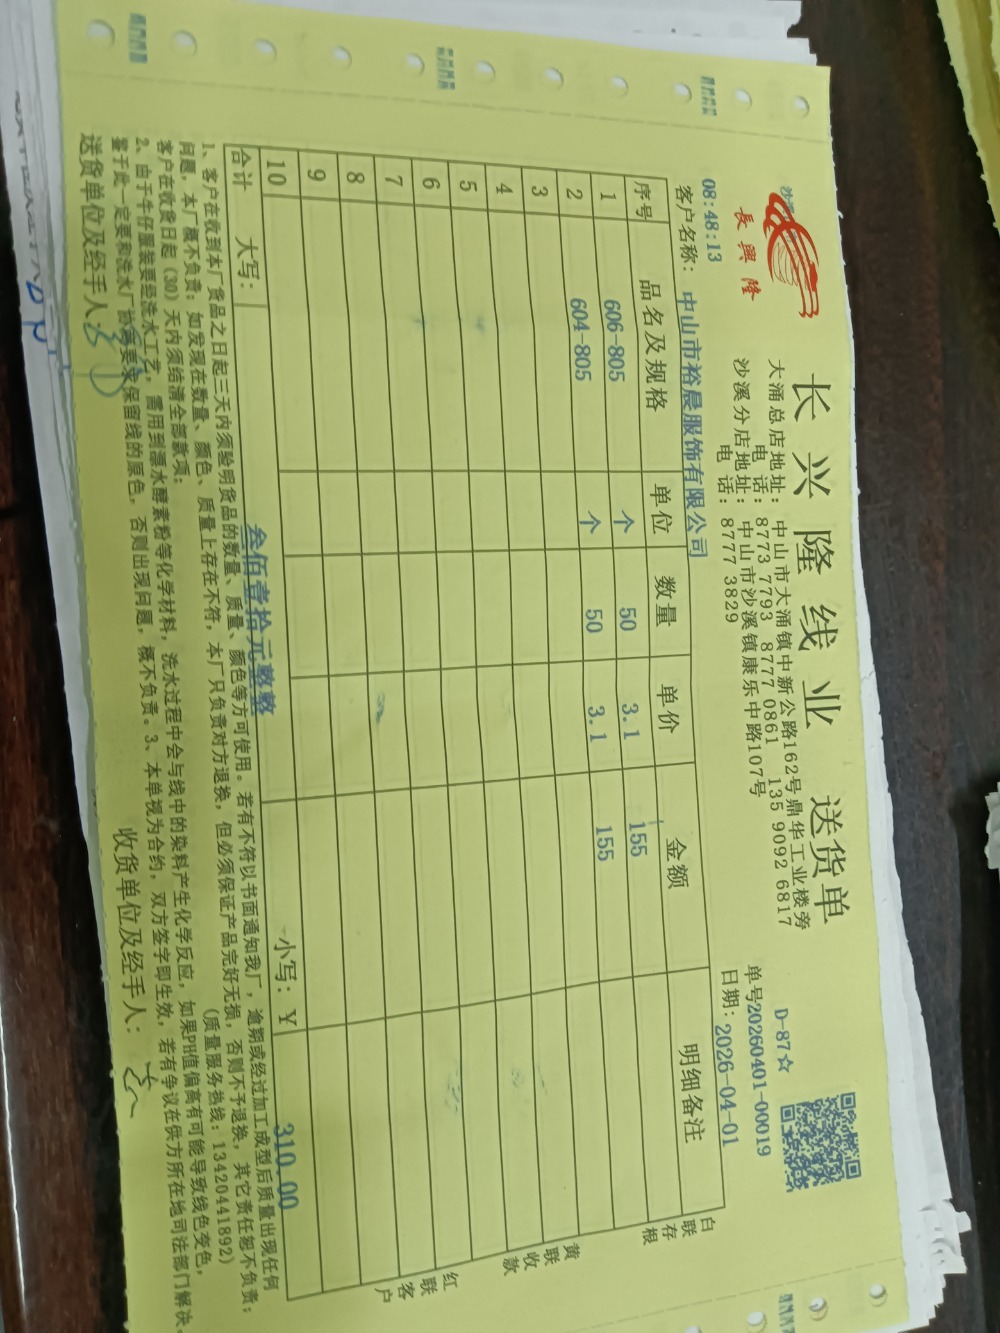 長興隆
长兴隆线业 送货单
大涌总店地址:中山市大涌镇中新公路162号鼎华工业楼旁
电 话:8773 7793 8777 0861 135 9092 6817
沙溪分店地址:中山市沙溪镇康乐中路107号
电 话:8777 3829
D-87☆
单号20260401-00019
日期:2026-04-01
08:48:13
客户名称:中山市裕晨服饰有限公司
序号 品名及规格 单位 数量 单价 金额 明细备注
1 606-805 个 50 3.1 155
2 604-805 个 50 3.1 155
3
4
5
6
7
8
9
10
合计 大写: 叁佰壹拾元整整 小写:Y 310.00
白联存根
黄联收款
红联客户
1、客户在收到本厂货品之日起三天内须验明货品的数量、质量、颜色等方可使用。若有不符以书面通知我厂,逾期或经过加工成型后质量出现任何
问题,本厂概不负责;如发现在数量、颜色、质量上存在不符,本厂只负责对方退换,但必须保证产品完好无损,否则不予退换,其它责任恕不负责;
客户在收货日起(30)天内须结清全部款项; (质量服务热线:13420441892)
2、由于牛仔服装要经洗水工艺,需用到漂水酵素粉等化学材料,洗水过程中会与线中的染料产生化学反应,如果PH值偏高有可能导致线色变色,
鉴于此一定要和洗水厂协调要求保留线的原色,否则出现问题,概不负责。3、本单视为合约,双方签字即生效,若有争议在供方所在地司法部门解决。
送货单位及经手人: 收货单位及经手人: